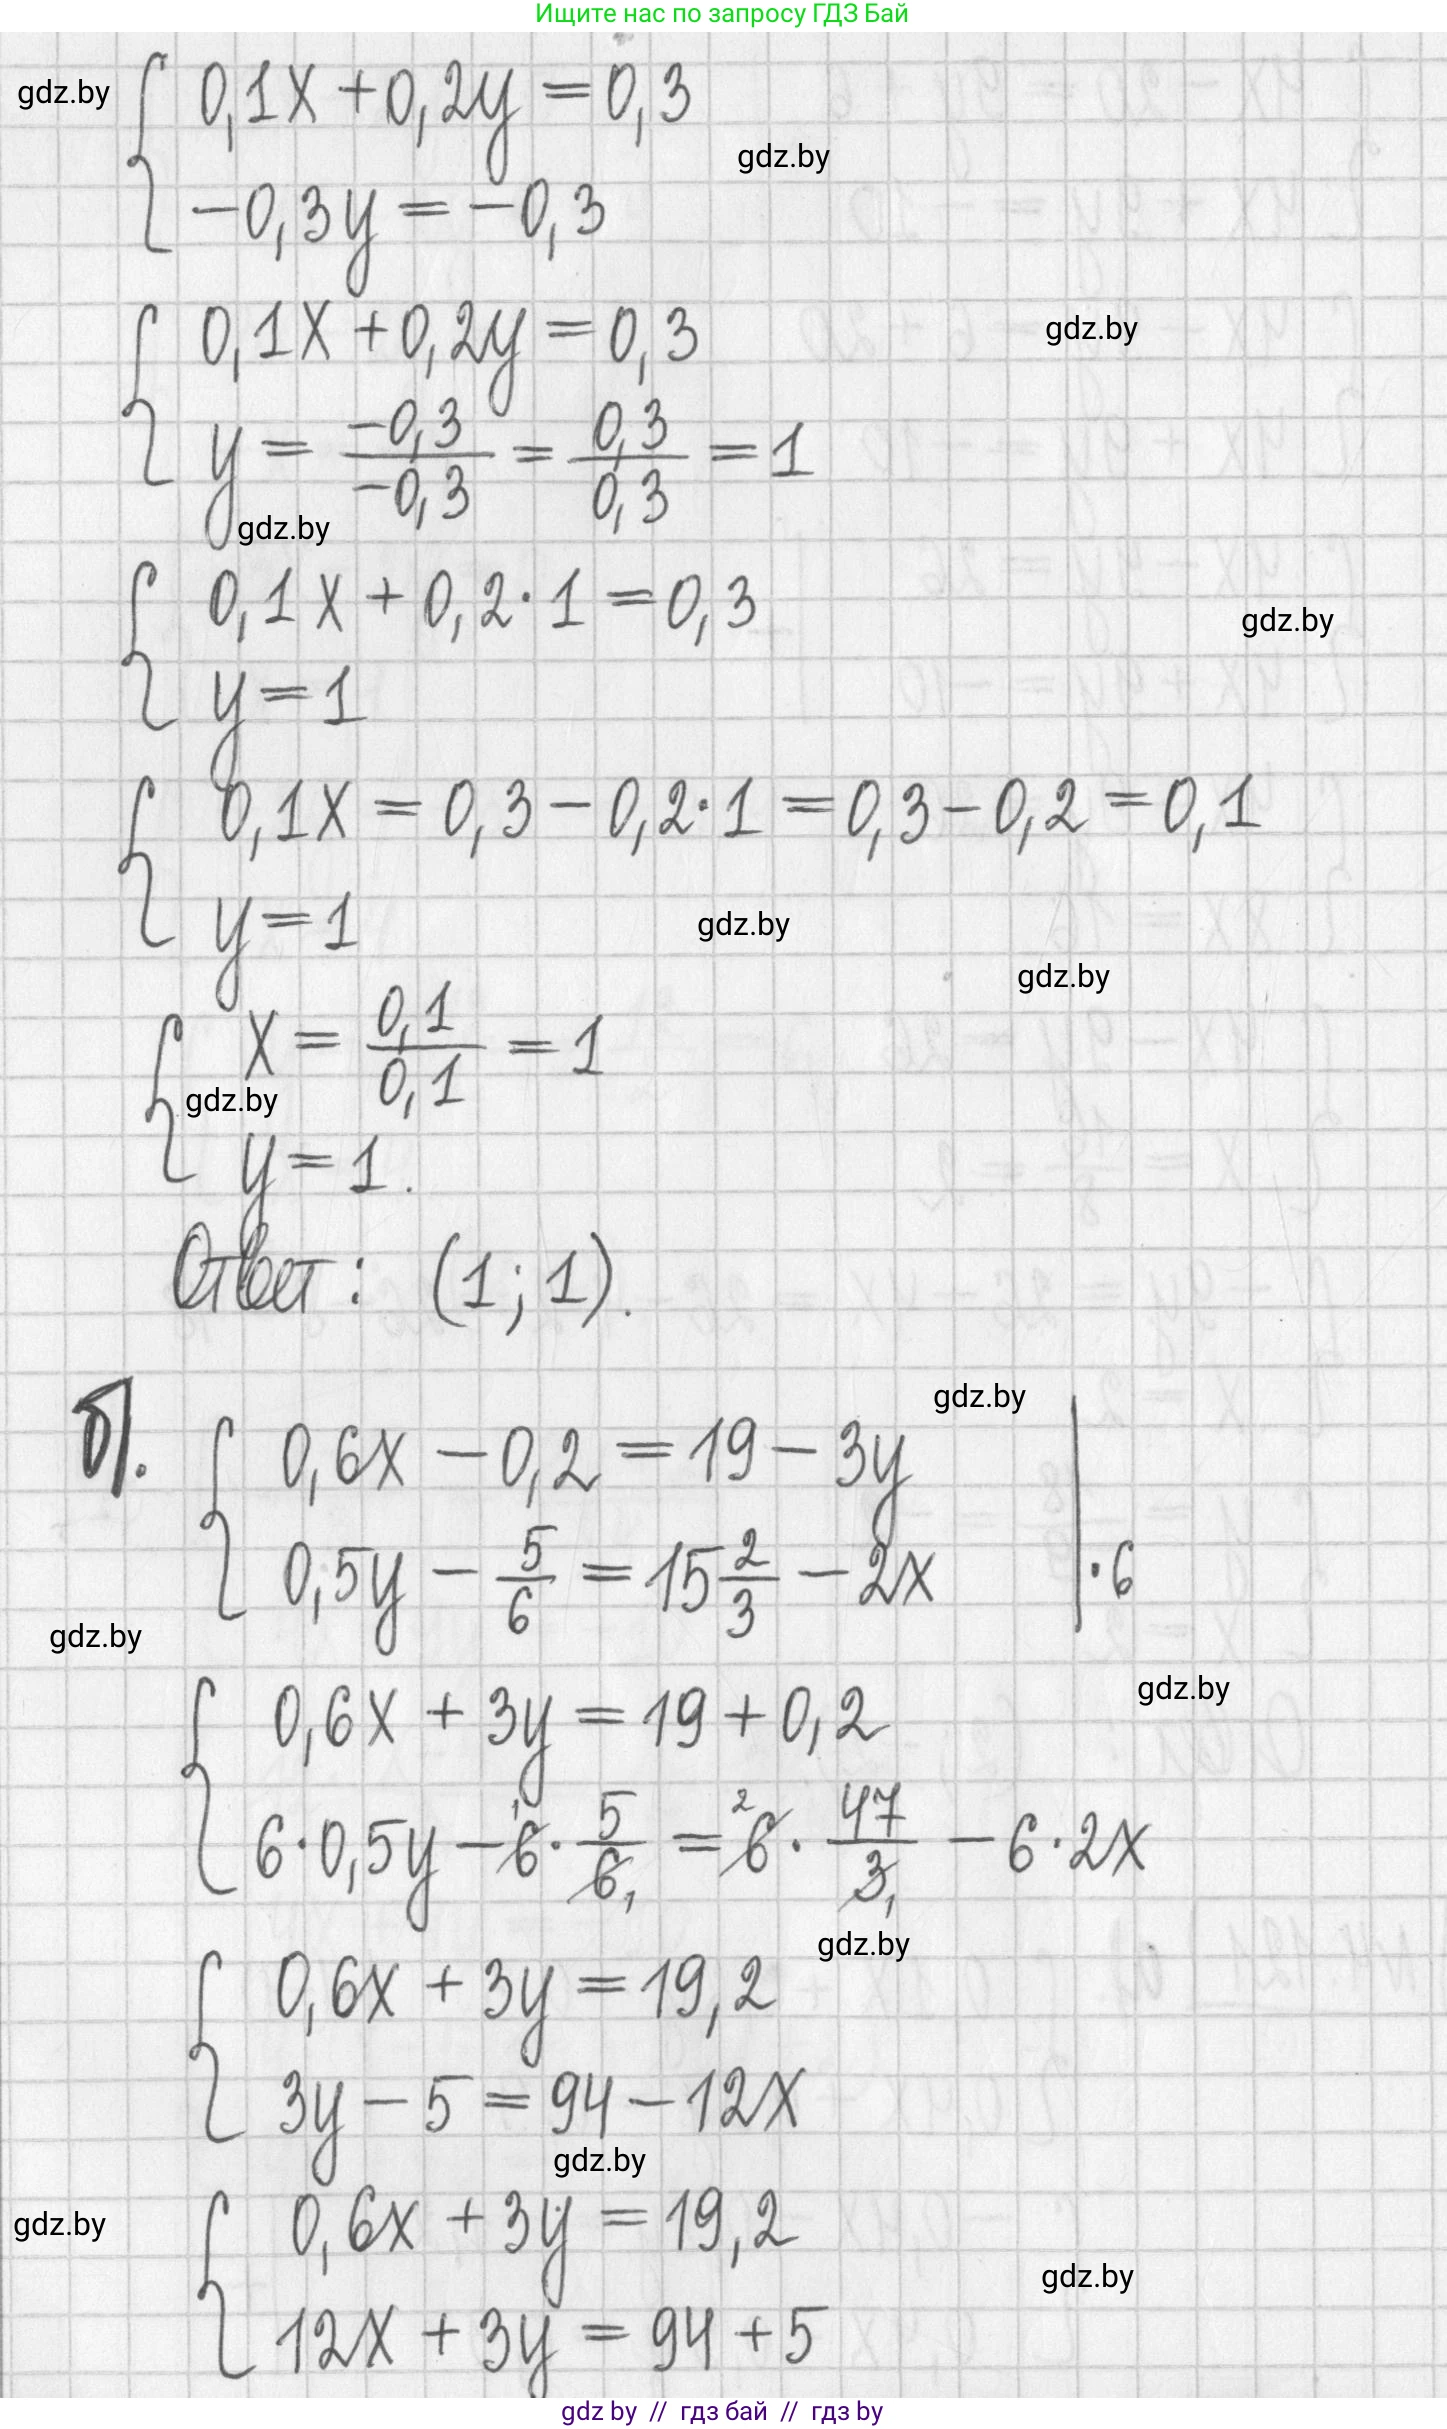 Ищите нас по запросу ГДЗ Бай
gdz.by
0,1x + 0,2y = 0,3
gdz.by
-0,3y = -0,3
0,1x + 0,2y = 0,3
gdz.by
y = -0,3/-0,3 = 0,3/0,3 = 1
gdz.by
0,1x + 0,2·1 = 0,3
gdz.by
y = 1
0,1x = 0,3 - 0,2·1 = 0,3 - 0,2 = 0,1
y = 1
gdz.by
gdz.by
x = 0,1/0,1 = 1
gdz.by
y = 1.
Ответ: (1; 1).
gdz.by
б). 0,6x - 0,2 = 19 - 3y
0,5y - 5/6 = 15 2/3 - 2x | ·6
gdz.by
gdz.by
0,6x + 3y = 19 + 0,2
6·0,5y - 6·5/6 = 6·47/3 - 6·2x
gdz.by
0,6x + 3y = 19,2
3y - 5 = 94 - 12x
gdz.by
gdz.by
0,6x + 3y = 19,2
gdz.by
12x + 3y = 94 + 5
gdz by // гдз бай // гдз by